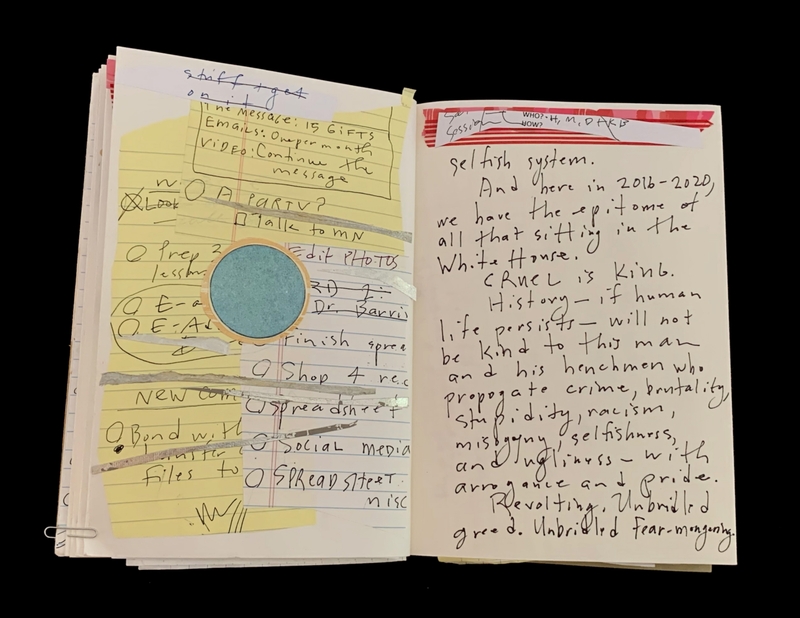 stuff + get
on it
The Message: 15 GIFTS
EMAILS: One per month
VIDEO: Continue the
message
A PARTY?
Talk to MN
LOOK
Prep
lesson
E-A
E-A
New
Bond with
Files to
Edit PHOTOS
Dr. Barri
Finish sprea
Shop 4 rec
Spreadsheet
Social media
SPREADSHEET
misc
WHO? H, M, D + K
NOW?
selfish system.
And here in 2016-2020,
we have the epitome of
all that sitting in the
White House.
CRUEL is King.
History — if human
life persists — will not
be kind to this man
and his henchmen who
propogate crime, brutality,
stupidity, racism,
misogyny, selfishness,
and ugliness — with
arrogance and pride.
Revolting. Unbridled
greed. Unbridled fear-mongering.